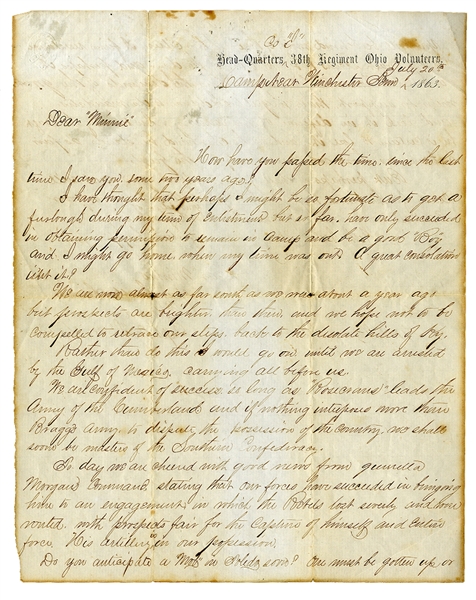 Co "C"
Head-Quarters, 38th Regiment Ohio Volunteers,
Camp Near Winchester Tenn July 20th 1863.
Dear "Minnie"
How have you passed the time, since the last
time I saw you, some two years ago?
I have thought that perhaps I might be so fortunate as to get a
furlough during my time of enlistment but so far, have only succeeded
in obtaining permission to remain in Camp and be a good "Boy"
and I might go home when my time was out. A great consolation
isnt it?
We are now almost as far south as we were about a year ago
but prospects are brighter than then, and we hope not to be
compelled to retrace our steps, back to the desolate hills of Ky.
Rather than do this I would go on until we are arrested
by the Gulf of Mexico, carrying all before us.
We are Confident of success, so long as "Rosecrans" leads the
Army of the Cumberland and if nothing interposes more than
Braggs army, to dispute the possession of the Country, we shall
soon be masters of the Southern Confederacy.
To day we are cheered with good news from guerrilla
Morgans Command stating that our forces have succeeded in bringing
him to an engagement, in which the Rebels lost severely and were
routed, with prospects fair for the Capture of himself and entire
force. His artillery in our possession.
Do you anticipate a Mob in Toledo soon? One must be gotten up or